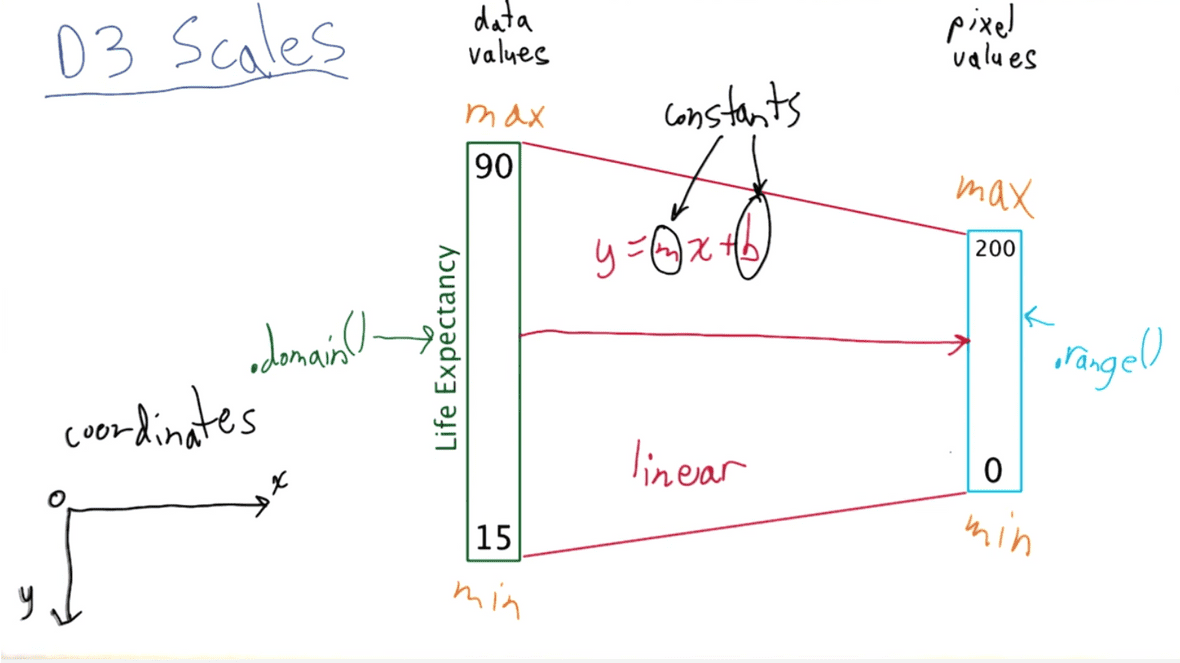 D3 Scales
data
values
pixel
values
max
constants
90
max
200
y = mx + b
Life Expectancy
.domain()
.range()
coordinates
linear
0
0
x
15
min
min
y